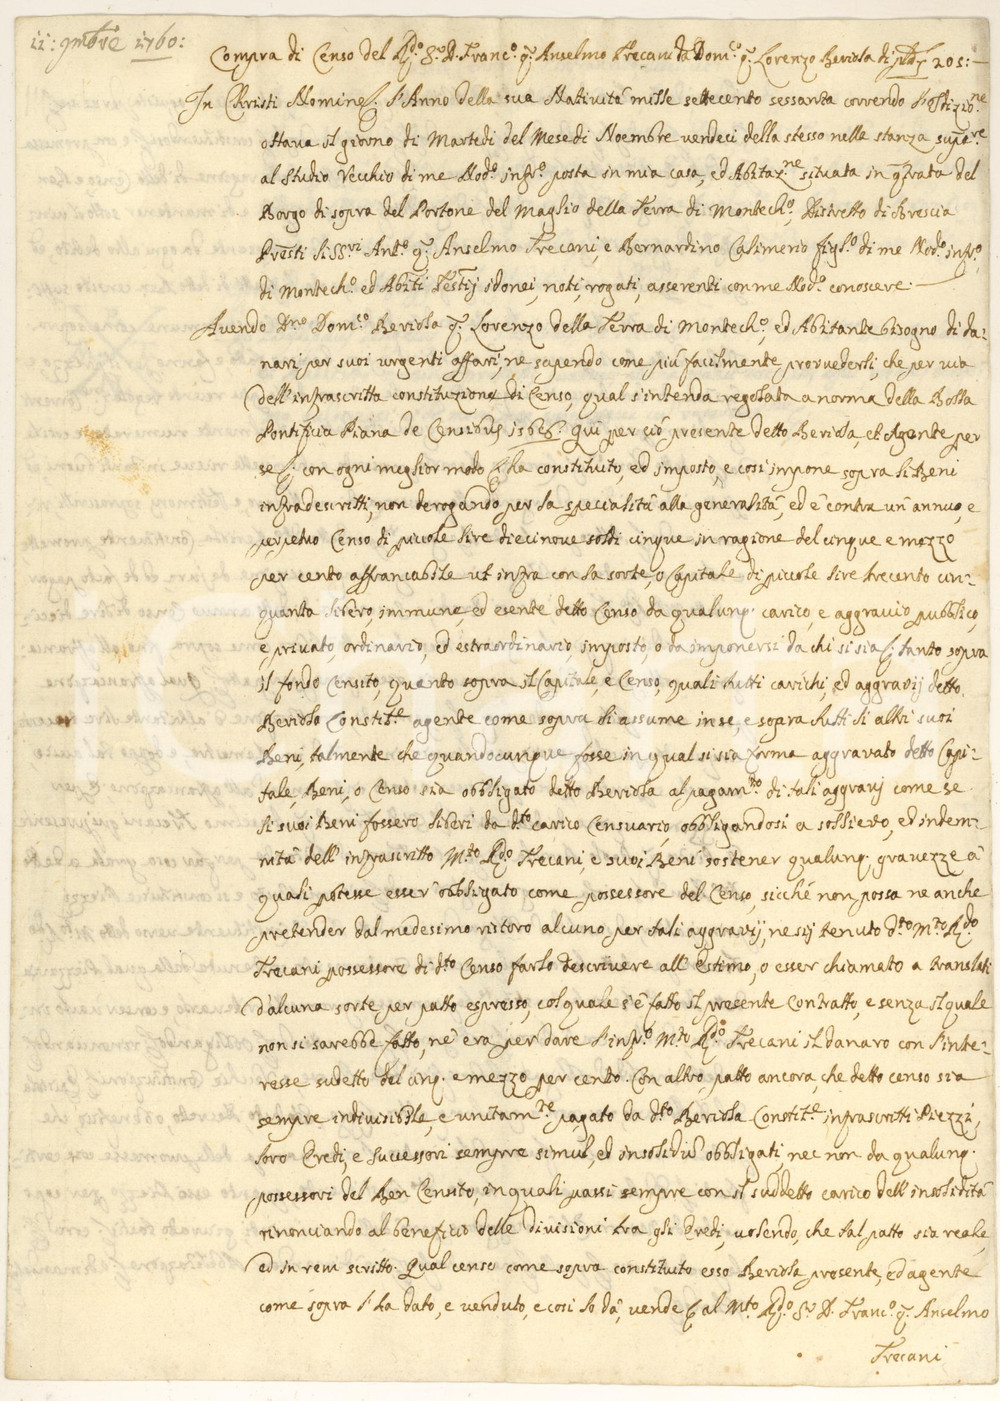 11: 9mbre 1760:
Compra di Censo del Rdo Sr D. Franco q. Anselmo Trecani da Domco q. Lorenzo Beriola di 205:
In Christi Nomine l'Anno della sua Natività mille settecento sessanta correndo l'Indizione
ottava il giorno di Martedi del Mese di Novembre undeci della stesso nella stanza supre
al Studio Vecchio di me Nodo infro posta in mia casa, ed Abitazne situata in qdrata del
Borgo di sopra del Portone del Maglio della Terra di Montecho, Distretto di Brescia
Presti li SSri Anto q. Anselmo Trecani, e Bernardino Casimerio figlo di me Nodo infro,
di Montecho ed Abiti Testij idonei, noti, rogati, asserenti con me Nodo conoscere.
Avendo Dno Domco Beriola q. Lorenzo della Terra di Montecho, ed Abitante bisogno di da-
nari per suoi urgenti affari, ne sapendo come più facilmente provvederli, che per via
dell'infrascritta constituzione di Censo, qual s'intenda regolata a norma della Bolla
Pontificia Piana de Censibus 1566. Qui per ciò presente detto Beriola, et Agente per
se con ogni miglior modo ha constituito, ed imposto, e così impone sopra li Beni
infradescritti, non derogando per la specialità alla generalità, ed è contra un annuo, e
perpetuo Censo di piccole lire diecinove soldi cinque in ragione del cinque e mezzo
per cento affrancabile ut infra con la sorte, o Capitale di piccole lire trecento cin-
quanta libero, immune, ed esente detto Censo da qualunq. carico, e aggravio pubblico,
e privato, ordinario, ed estraordinario, imposto, o da imponersi da chi si sia tanto sopra
il fondo Censito, quanto sopra il Capitale, e Censo, quali tutti carichi, ed aggravij detto
Beriola Constite agente come sopra li assume in se, e sopra tutti li altri suoi
Beni, talmente che quandocunque fosse in qual si sia forma aggravato detto Capi-
tale, Beni, o Censo sia obbligato detto Beriola al pagamto di tali aggravj come se
li suoi Beni fossero liberi da dto carico Censuario, obbligandosi a sollievo, ed indem-
nità dell'infrascritto Mto Rdo Trecani, e suoi Beni sostener qualunq. gravezze a
quali potesse esser obbligato come possessore del Censo, sicché non possa ne anche
pretender dal medesimo ristoro alcuno per tali aggravij, ne sij tenuto dto Mto Rdo
Trecani possessore di dto Censo farlo descrivere all'Estimo, o esser chiamato a translati
d'alcuna sorte per patto espresso, col quale s'è fatto il presente Contratto, e senza il quale
non si sarebbe fatto, ne era per dare l'infro Mto Rdo Trecani il danaro con l'inte-
resse sudetto del cinq. e mezzo per cento. Con altro patto ancora, che detto censo sia
sempre indivisibile, e unitamte pagato da dto Beriola Constite, infrascritti Piezzi,
loro Eredi, e Successori sempre simul, ed insolidu obbligati, nec non da qualunq.
possessori del Ben Censito, in quali passi sempre con il suddetto carico dell'insolidità
rinonciando al beneficio delle divisioni tra gli Eredi, volendo, che tal patto sia reale,
ed in rem scritto. Qual censo come sopra constituito esso Beriola presente, ed agente
come sopra l'ha dato, e venduto, e così lo dà, vende al Mto Rdo Sr D. Franco q. Anselmo
Trecani